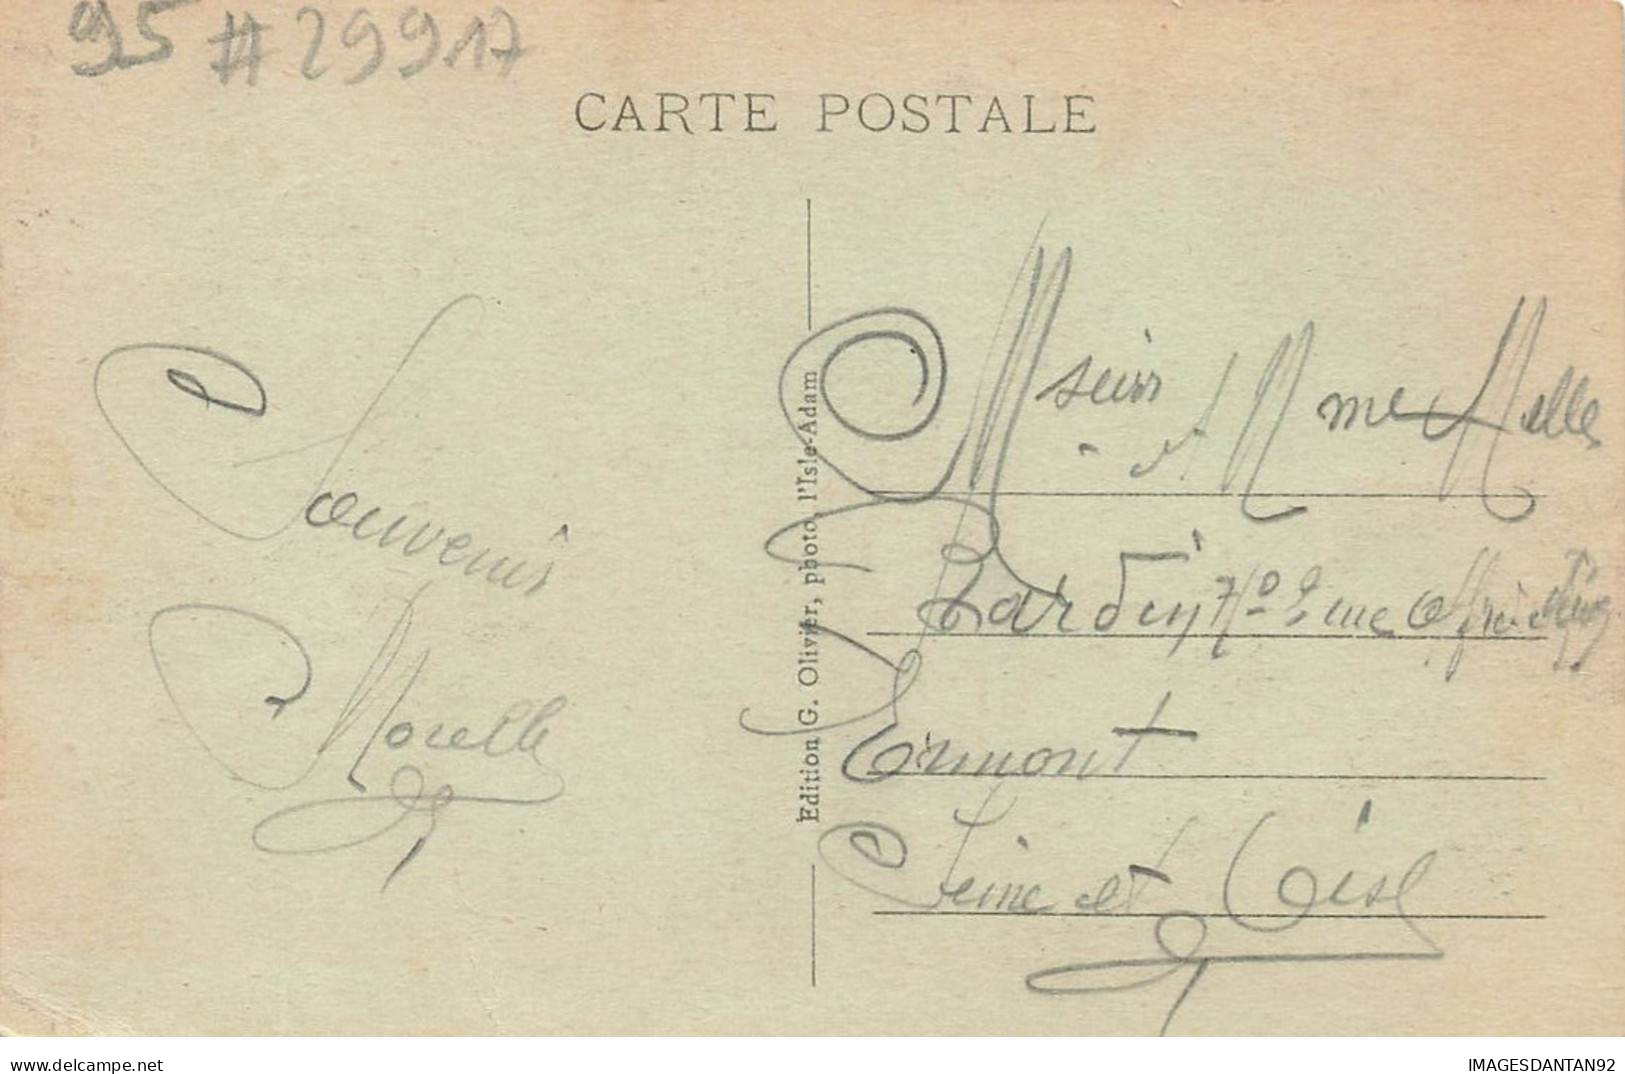 95 # 29917
CARTE POSTALE
Souvenir
Morelle
Edition G. Olivier, photo, l'Isle-Adam
Mseur et Mme Melle
Jardin
Ermont
Seine et Oise
delcampe.net
IMAGESDANTAN92